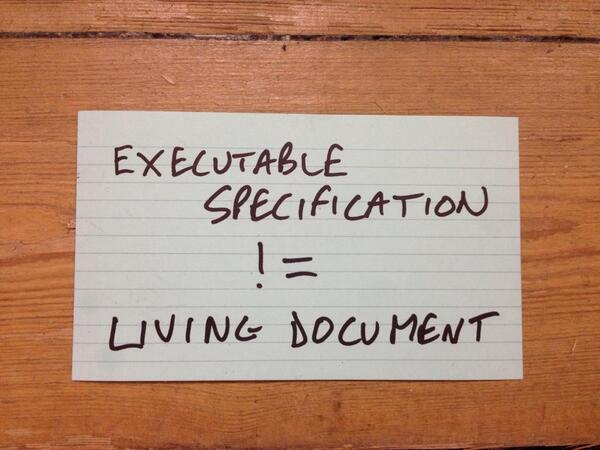 EXECUTABLE
SPECIFICATION
!=
LIVING DOCUMENT